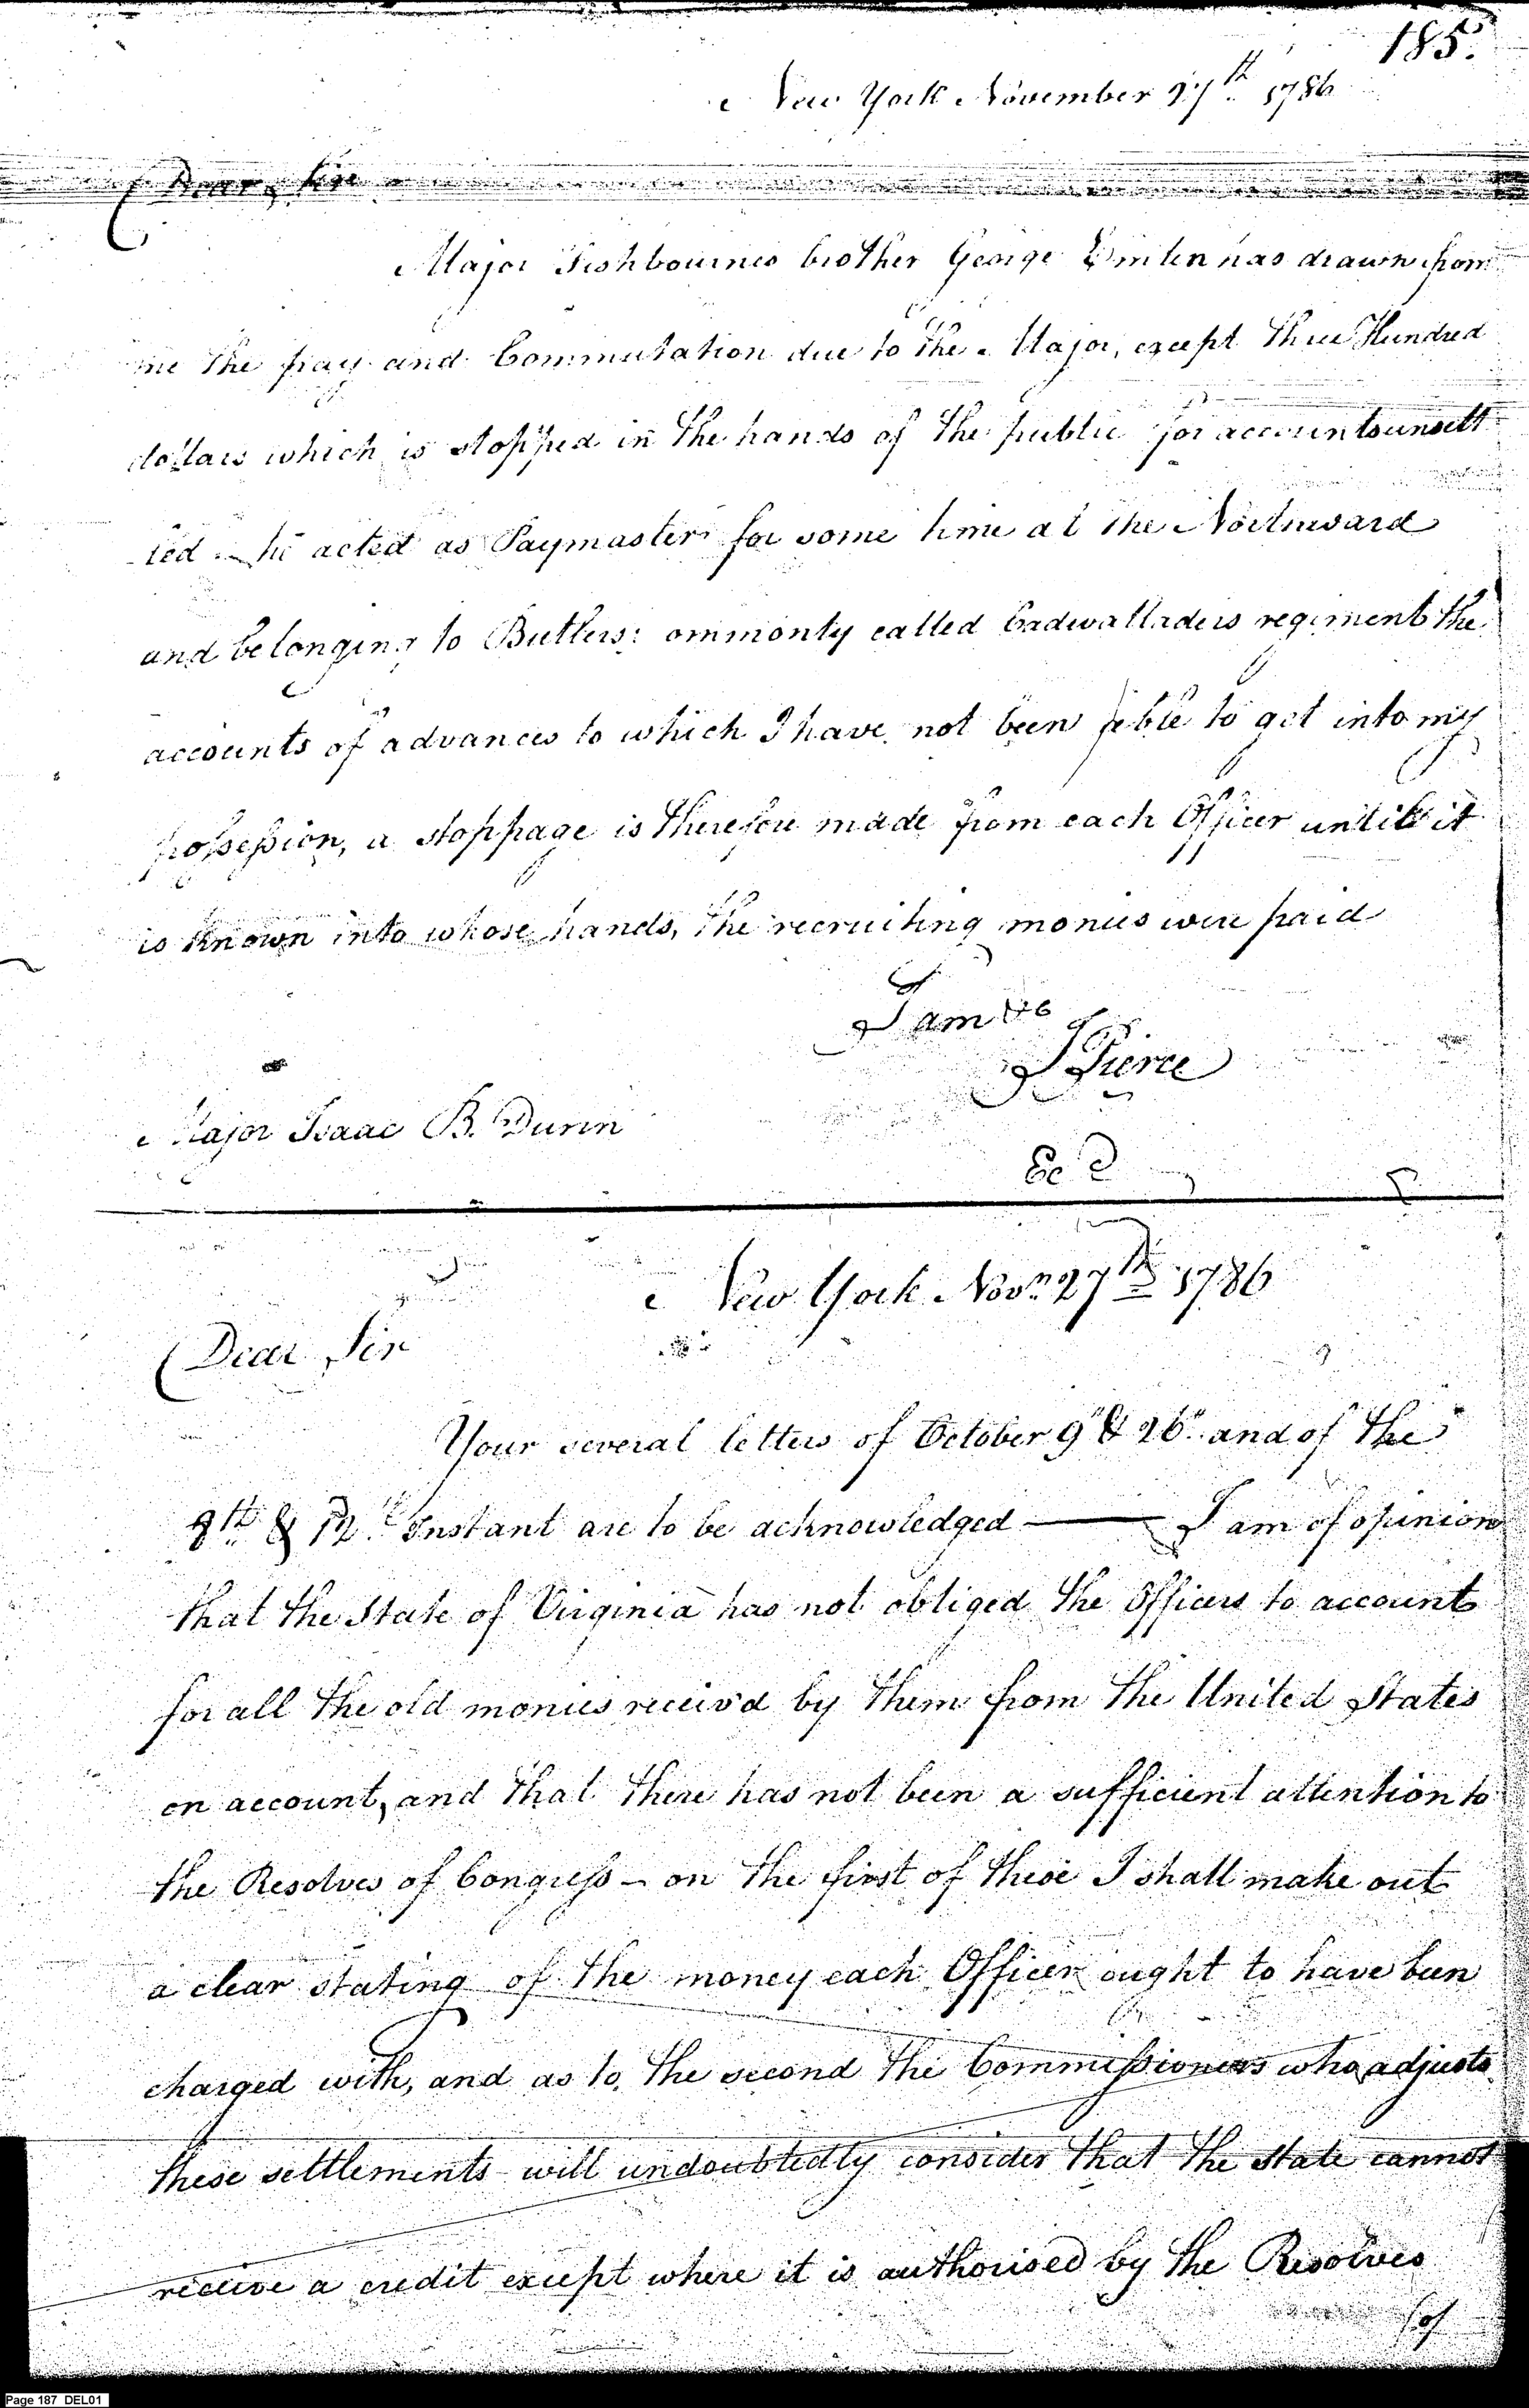 185.
New York November 27th 1786
Dear Sir
Major Fishbournes brother George Emlen has drawn from
me the pay and Commutation due to the Major, except Three Hundred
dollars which is stopped in the hands of the public for accounts unsett
led - he acted as Paymaster for some time at the Northward
and belonging to Butlers commonly called Cadwalladers regiment the
accounts of advances to which I have not been able to get into my
possession, a stoppage is therefore made from each Officer until it
is known into whose hands, the recruiting monies were paid
I am &c
J Pierce
Major Isaac B. Dunn
New York Novr 27th 1786
Dear Sir
Your several letters of October 9th & 26th and of the
8th & 12th Instant are to be acknowledged — I am of opinion
that the State of Virginia has not obliged the Officers to account
for all the old monies receiv'd by them from the United States
on account, and that there has not been a sufficient attention to
the Resolves of Congress - on the first of these I shall make out
a clear stating of the money each Officer ought to have been
charged with, and as to the second the Commissioners who adjusts
these settlements will undoubtedly consider that the State cannot
receive a credit except where it is authorised by the Resolves
of
Page 187 DEL01